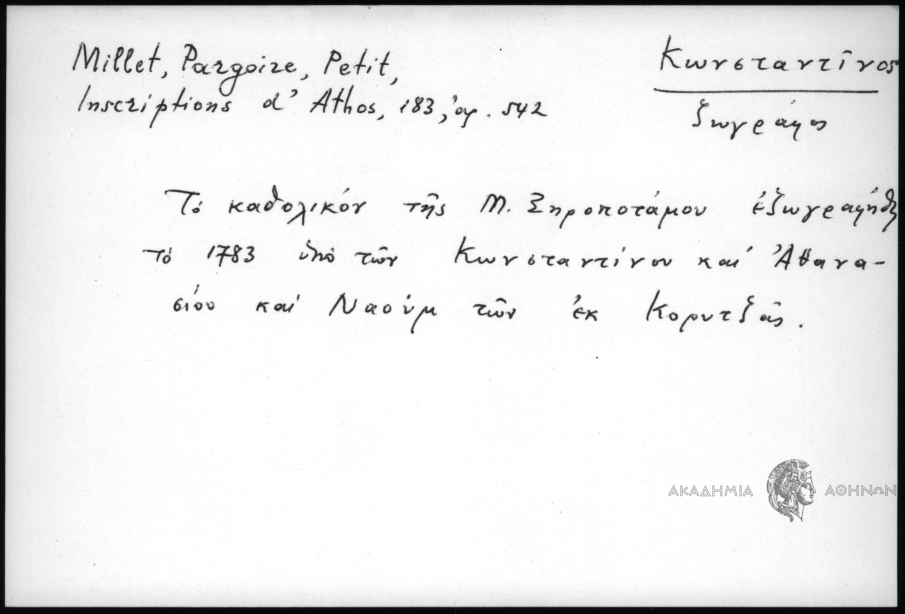 Millet, Pargoire, Petit,
Inscriptions d' Athos, 183, ἀρ. 542
Κωνσταντῖνος
ζωγράφος
Τὸ καθολικόν τῆς Μ. Ξηροποτάμου ἐζωγραφήθη
τὸ 1783 ὑπὸ τῶν Κωνσταντίνου καὶ Ἀθανα-
σίου καὶ Ναούμ τῶν ἐκ Κορυτζᾶς.
ΑΚΑΔΗΜΙΑ ΑΘΗΝΩΝ